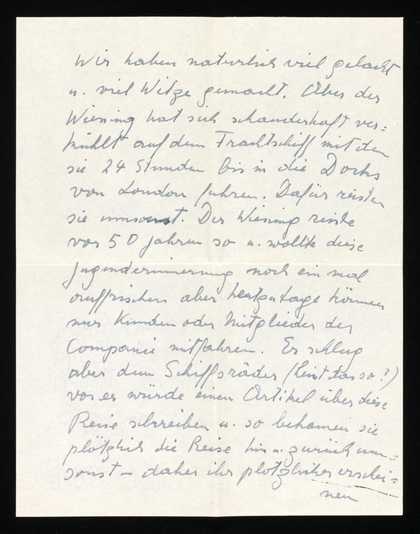 Wir haben natürlich viel gelacht
u. viel Witze gemacht. Aber der
Wiesing hat sich schauderhaft ver=
kühlt auf dem Frachtschiff mit dem
sie 24 Stunden bis in die Docks
von London fuhren. Dafür reisten
sie umsonst. Der Wiesing reiste
vor 50 Jahren so u. wollte diese
Jugenderinnerung noch ein mal
auffrischen aber heutzutage können
nur Kunden oder Mitglieder der
Companie mitfahren. Er schlug
aber dem Schiffsräder (heisst das so?)
vor er würde einen Artikel über diese
Reise schreiben u. so bekamen sie
plötzlich die Reise hin u. zurück um=
sonst – daher ihr plötzliches erschei=
nen